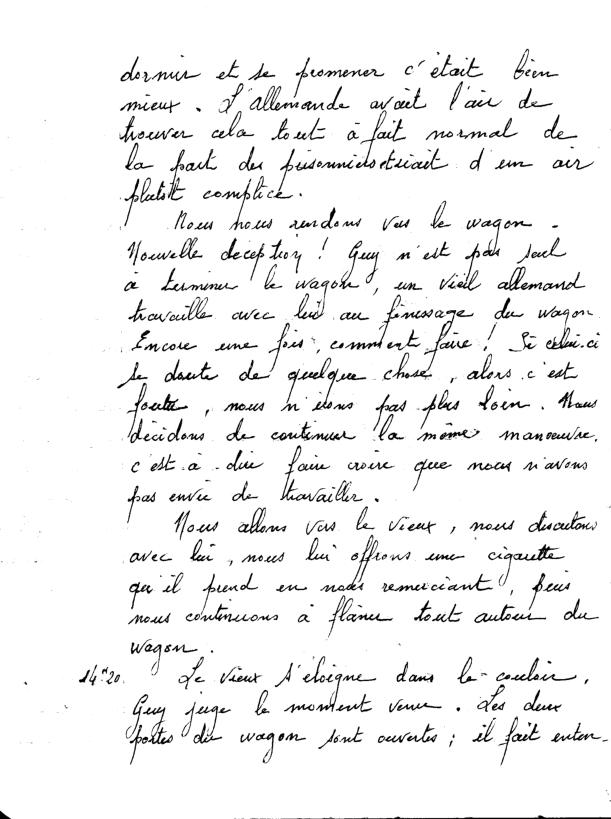 dormir et se promener c'était bien
mieux. L'allemande avait l'air de
trouver cela tout à fait normal de
la part des prisonniers et riait d'un air
plutôt complice.
Nous nous rendons vers le wagon.
Nouvelle déception ! Guy n'est pas seul
à terminer le wagon, un vieil allemand
travaille avec lui au finissage du wagon
Encore une fois, comment faire ! Si celui-ci
se doute de quelque chose, alors c'est
foutu, nous n'irons pas plus loin. Nous
décidons de continuer la même manoeuvre,
c'est à dire faire croire que nous n'avons
pas envie de travailler.
Nous allons vers le vieux, nous discutons
avec lui, nous lui offrons une cigarette
qu'il prend en nous remerciant, puis
nous continuons à flâner tout autour du
wagon.
14h20. Le vieux s'éloigne dans le couloir,
Guy juge le moment venu. Les deux
portes du wagon sont ouvertes ; il fait enten-